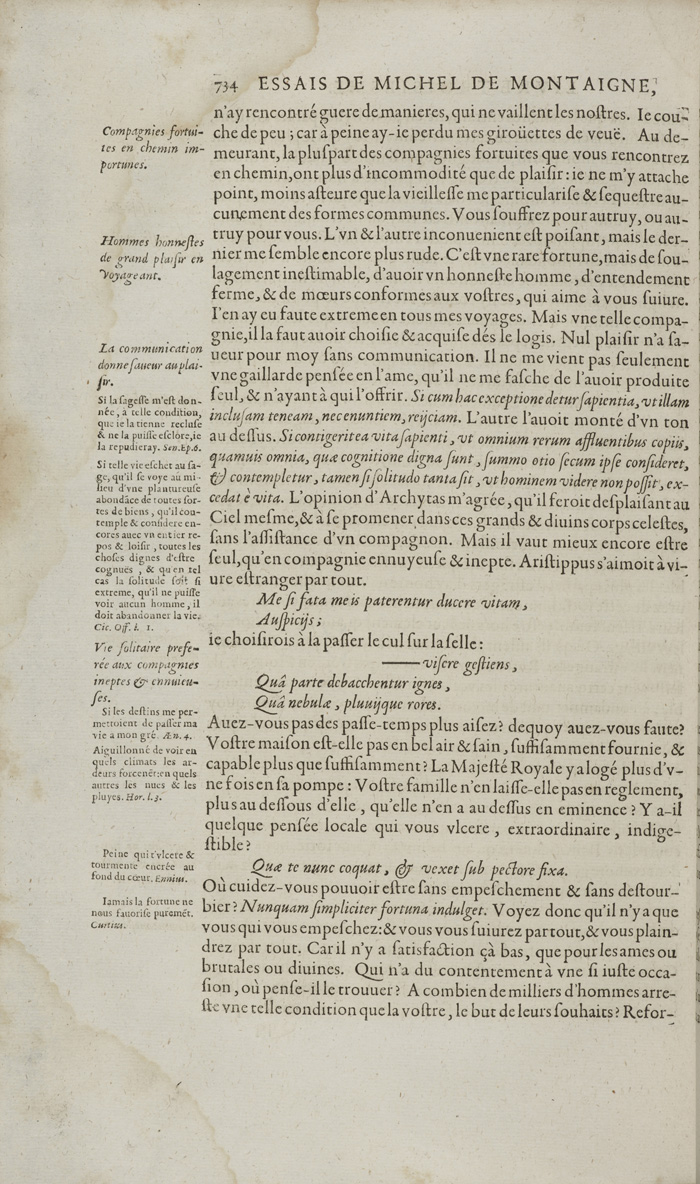 734 ESSAIS DE MICHEL DE MONTAIGNE,
n'ay rencontré guere de manieres, qui ne vaillent les nostres. Ie cou-
che de peu ; car à peine ay-ie perdu mes giroüettes de veuë. Au de-
meurant, la pluſpart des compagnies fortuites que vous rencontrez
en chemin, ont plus d'incommodité que de plaiſir : ie ne m'y attache
point, moins aſteure que la vieilleſſe me particulariſe & ſequeſtre au-
cunement des formes communes. Vous ſouffrez pour autruy, ou au-
truy pour vous. L'vn & l'autre inconuenient eſt poiſant, mais le der-
nier me ſemble encore plus rude. C'eſt vne rare fortune, mais de ſou-
lagement ineſtimable, d'auoir vn honneſte homme, d'entendement
ferme, & de mœurs conformes aux voſtres, qui aime à vous ſuiure.
I'en ay eu faute extreme en tous mes voyages. Mais vne telle compa-
gnie, il la faut auoir choiſie & acquiſe dés le logis. Nul plaiſir n'a ſa-
ueur pour moy ſans communication. Il ne me vient pas ſeulement
vne gaillarde penſée en l'ame, qu'il ne me faſche de l'auoir produite
ſeul, & n'ayant à qui l'offrir. Si cum hac exceptione detur ſapientia, vt illam
incluſam teneam, nec enuntiem, reijciam. L'autre l'auoit monté d'vn ton
au deſſus. Si contigerit ea vita ſapienti, vt omnium rerum affluentibus copiis,
quamuis omnia, quæ cognitione digna ſunt, ſummo otio ſecum ipſe conſideret,
& contempletur, tamen ſi ſolitudo tanta ſit, vt hominem videre non poſſit, ex-
cedat è vita. L'opinion d'Archytas m'agrée, qu'il feroit deſplaiſant au
Ciel meſme, & à ſe promener dans ces grands & diuins corps celeſtes,
ſans l'aſſiſtance d'vn compagnon. Mais il vaut mieux encore eſtre
ſeul, qu'en compagnie ennuyeuſe & inepte. Ariſtippus s'aimoit à vi-
ure eſtranger par tout.
Me ſi fata meis paterentur ducere vitam,
Auſpicijs ;
ie choiſirois à la paſſer le cul ſur la ſelle :
—— viſere geſtiens,
Quâ parte debacchentur ignes,
Quâ nebulæ, pluuijque rores.
Auez-vous pas des paſſe-temps plus aiſez? dequoy auez-vous faute?
Voſtre maiſon eſt-elle pas en bel air & ſain, ſuffiſamment fournie, &
capable plus que ſuffiſamment? La Majeſté Royale y a logé plus d'v-
ne fois en ſa pompe : Voſtre famille n'en laiſſe-elle pas en reglement,
plus au deſſous d'elle, qu'elle n'en a au deſſus en eminence? Y a-il
quelque penſée locale qui vous vlcere, extraordinaire, indige-
ſtible?
Quæ te nunc coquat, & vexet ſub pectore fixa.
Où cuidez-vous pouuoir eſtre ſans empeſchement & ſans deſtour-
bier? Nunquam ſimpliciter fortuna indulget. Voyez donc qu'il n'y a que
vous qui vous empeſchez : & vous vous ſuiurez par tout, & vous plain-
drez par tout. Car il n'y a ſatisfaction çà bas, que pour les ames ou
brutales ou diuines. Qui n'a du contentement à vne ſi iuſte occa-
ſion, où penſe-il le trouuer? A combien de milliers d'hommes arre-
ſte vne telle condition que la voſtre, le but de leurs ſouhaits? Refor-
Compagnies fortui-
tes en chemin im-
portunes.
Hommes honneſtes
de grand plaiſir en
voyageant.
La communication
donne ſaueur au plai-
ſir.
Si la ſageſſe m'eſt don-
née, à telle condition,
que ie la tienne recluſe
& ne la puiſſe eſclôre, ie
la repudieray. Sen. Ep. 6.
Si telle vie eſchet au ſa-
ge, qu'il ſe voye au mi-
lieu d'vne plantureuſe
abondãce de toutes ſor-
tes de biens, qu'il cõu-
temple & conſidere en-
cores auec vn entier re-
pos & loiſir, toutes les
choſes dignes d'eſtre
cognuës, & qu'en tel
cas la ſolitude ſoit ſi
extreme, qu'il ne puiſſe
voir aucun homme, il
doit abandonner la vie.
Cic. Off. l. 1.
Vie ſolitaire prefe-
rée aux compagnies
ineptes & ennuieu-
ſes.
Si les deſtins me per-
mettoient de paſſer ma
vie a mon gré. Æn. 4.
Aiguillonné de voir en
quels climats les ar-
deurs forcenẽt : en quels
autres les nues & les
pluyes. Hor. l. 3.
Peine qui t'vlcere &
tourmente encrée au
fond du cœur. Ennius.
Iamais la fortune ne
nous fauoriſe puremẽt.
Curtius.